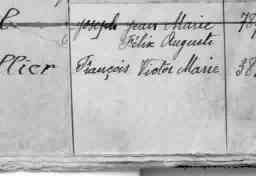 Joseph Jean Marie
Félix Auguste
llier François Victor Marie 38